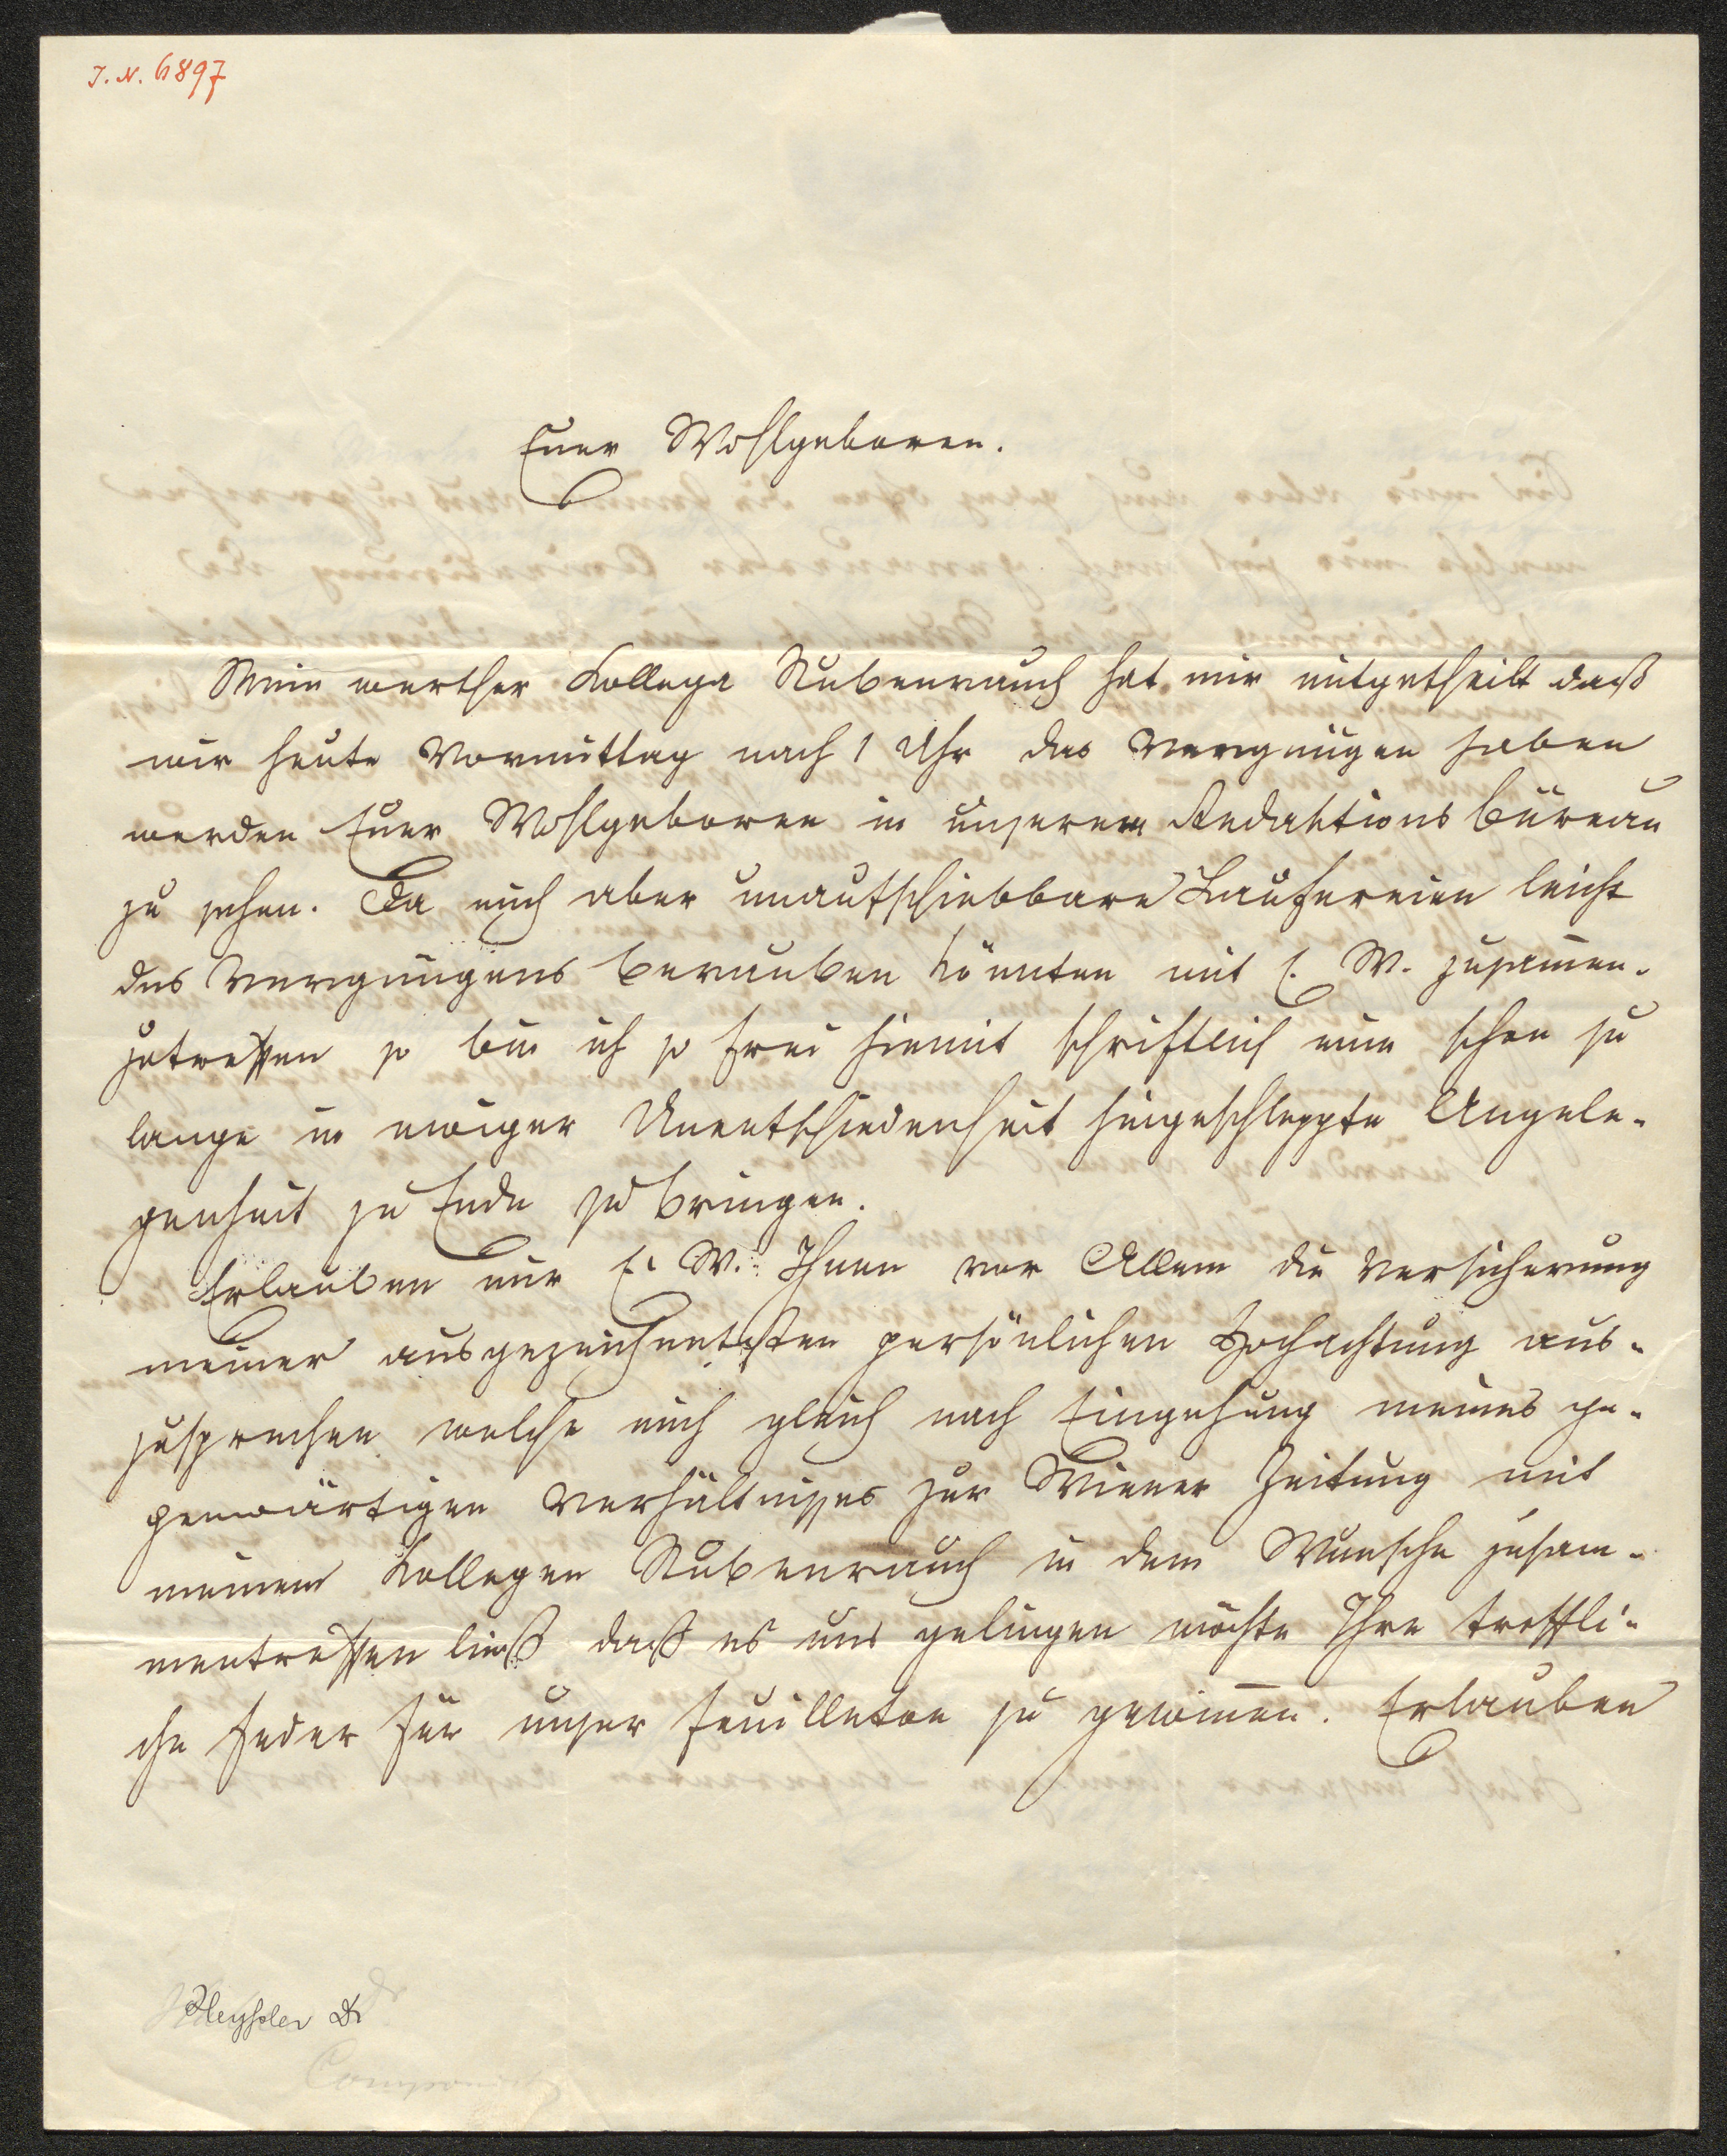 I. N. 6897
Euer Wohlgeboren.
Mein werther Kollega Stubenrauch hat mir mitgetheilt daß
wir heute Vormittag nach 1 Uhr das Vergnügen haben
werden Euer Wohlgeboren in unserem Redaktions büreau
zu sehen. Da mich aber unaufschiebbare Laufereien leicht
des Vergnügens berauben könnten mit E. W. zusam̅en-
zutreffen so bin ich so frei hiemit schriftlich eine schon zu
lange in ewiger Unentschiedenheit hingeschleppte Angele-
genheit zu Ende zu bringen.
Erlauben mir E. W. Ihnen vor Allem die Versicherung
meiner ausgezeichnetesten persönlichen Hochachtung aus-
zusprechen welche mich gleich nach Eingehung meines ge-
genwärtigen Verhältnisses zur Wiener Zeitung mit
meinem Kollegen Stubenrauch in dem Wunsche zusam-
mentreffen ließ daß es uns gelingen möchte Ihre treffli-
che Feder für unser Feuilleton zu gewin̅en. Erlauben
Heyssler Dr